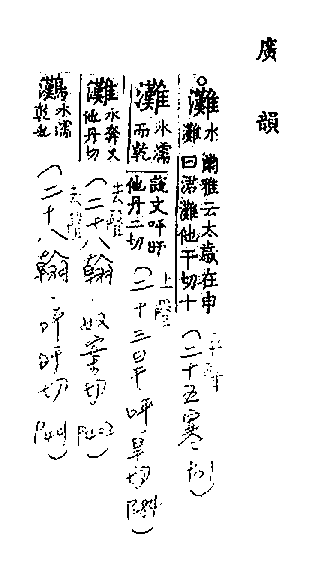 廣韻
灘 水灘 爾雅云太歲在申曰涒灘他干切十 (二十五寒
灘 水濡而乾 說文呼旰他丹二切 上聲 (二十三旱 呼旱切
灘 水奔又他丹切 去聲 (二十八翰·奴案切
灘 水濡乾也 去聲 (二十八翰·呼旰切